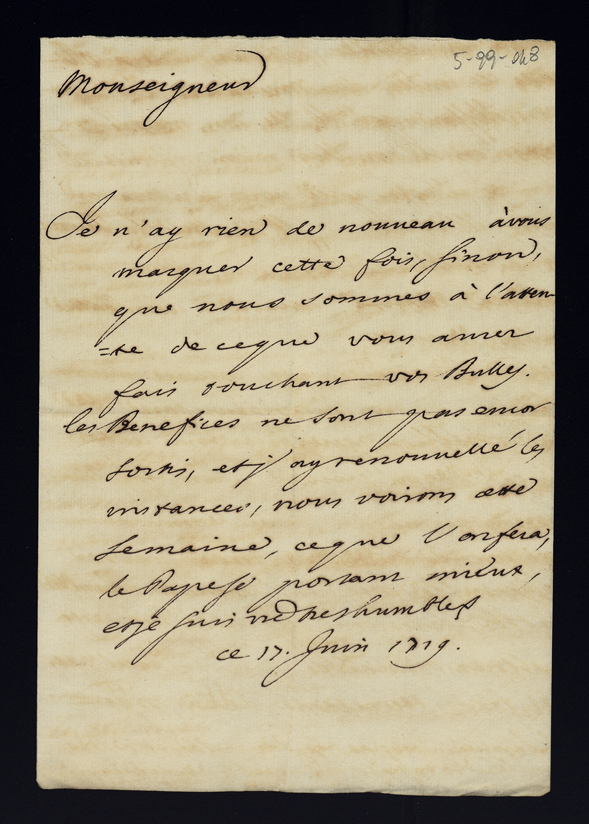 5-99-048
Monseigneur
Je n'ay rien de nouveau àvous
marquer cette fois, sinon,
que nous sommes à l'atten-
=te de ceque vous aurer
fais touchant vos Bulles.
les Benefices ne sont pas encor
sortis, et j'ay renouvellé les
instances, nous voirons cette
semaine, ceque l'on fera,
le Pape se portant mieux,
et je suis vre tres humble
ce 17. Juin 1719.